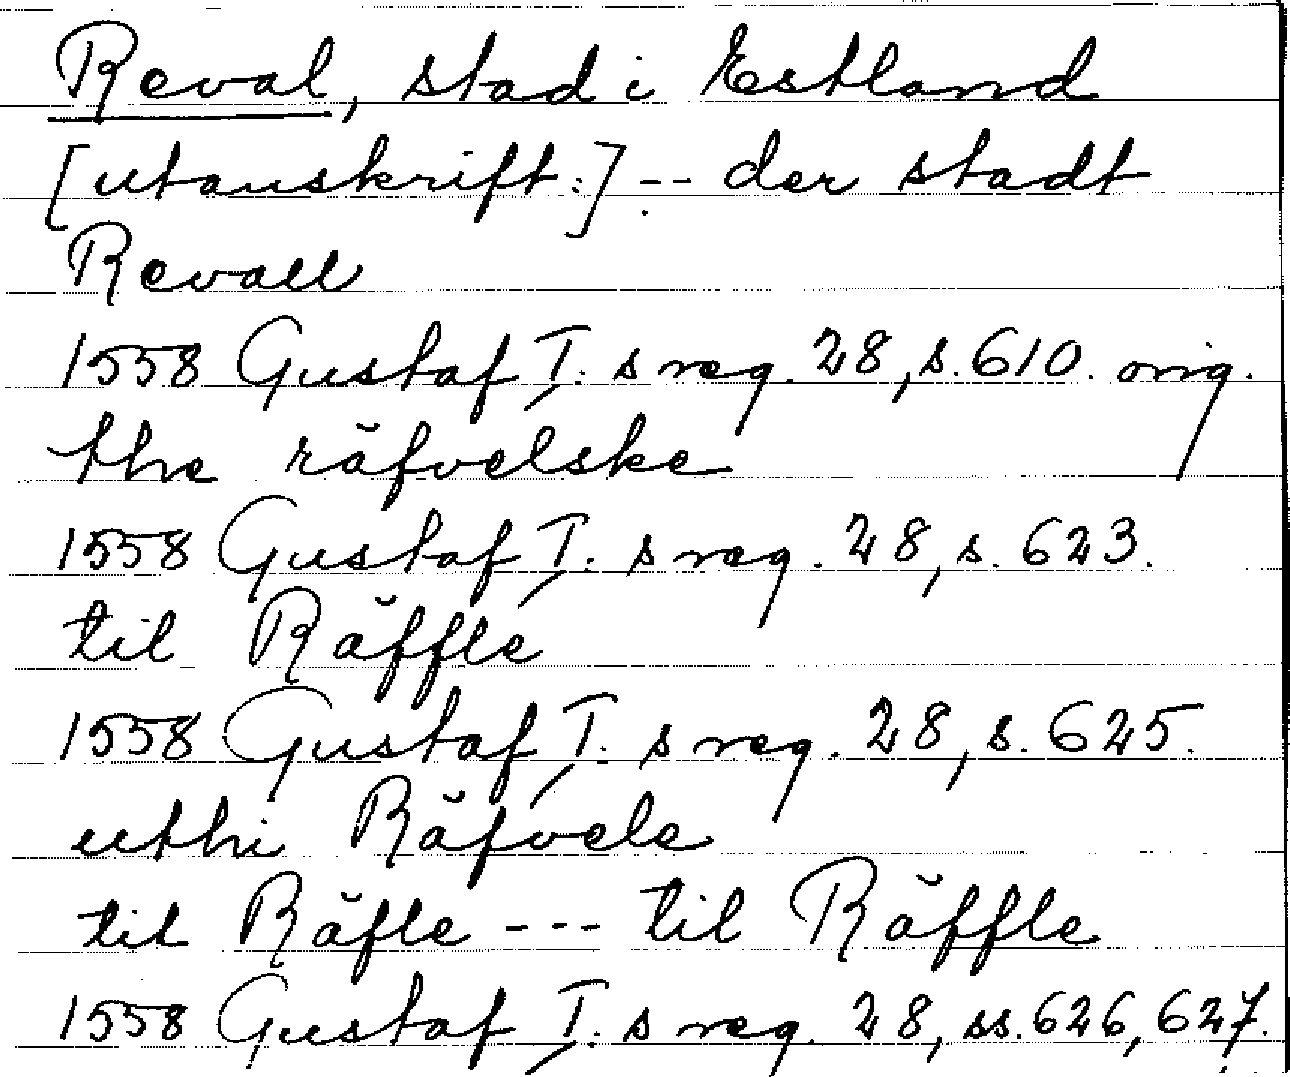 Reval, stad i Estland
[utanskrift:] --- der stadt
Revall
1558 Gustaf I: s reg. 28, s. 610. orig.
the räfvelske
1558 Gustaf I: s reg. 28, s. 623.
til Räffle
1558 Gustaf I: s reg. 28, s. 625.
uthi Räfvele
til Räfle --- til Räffle
1558 Gustaf I: s reg. 28, ss. 626, 627.